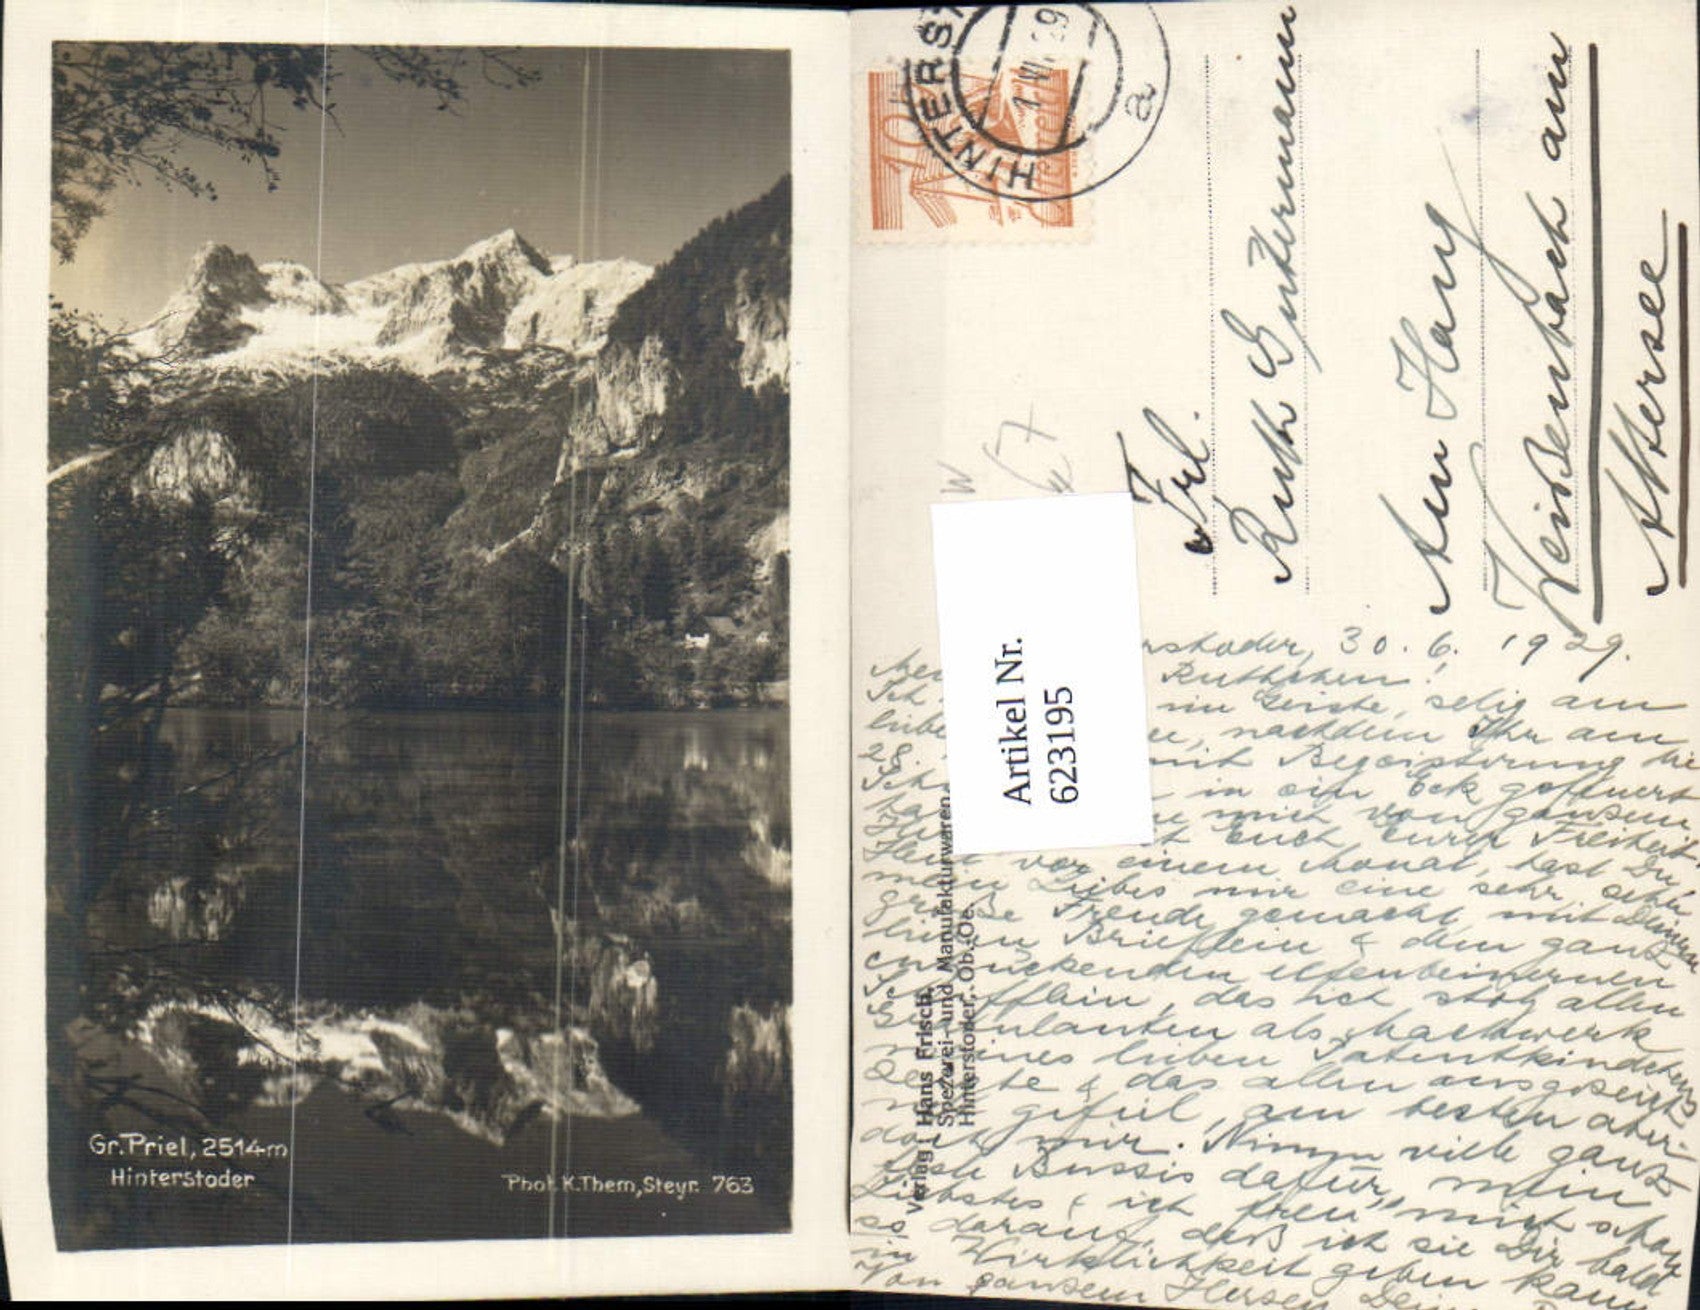 Gr. Priel, 2514m
Hinterstoder
Phot. K. Them, Steyr. 763
HINTERST
1.VI.29
a
10
Frl.
Ruth Gutermann
Am Hang
Weißenbach am
Attersee
W
67
Artikel Nr.
623195
Verlag Hans Frisch,
Spezerei- und Manufakturwaren
Hinterstoder, Ob.-Oe.
rstoder, 30. 6. 1929.
Ruthchen!
Ich im Geiste, selig am
liebe nachdem Ihr am
28. mit Begeisterung die
Ich in ein Eck gefeuert
mich von ganzem
Euch Eurer Freiheit.
Heut vor einem Monat, hast Du,
mein Liebes mir eine sehr, sehr
große Freude gemacht, mit Deinem
lieben Brieflein & dem ganz
entzückenden elfenbeinernen
das sich stolz allen
als Machwerk
meines lieben Patentkinderls
& das allen ausgezeichnet
gefiel, am besten aber
doch mir. Nimm viele ganz
Bussis dafür, mein
Liebstes & ich freu mich schon
so darauf, daß ich sie Dir bald
in Wirklichkeit geben kann
Von ganzem Herzen Dein